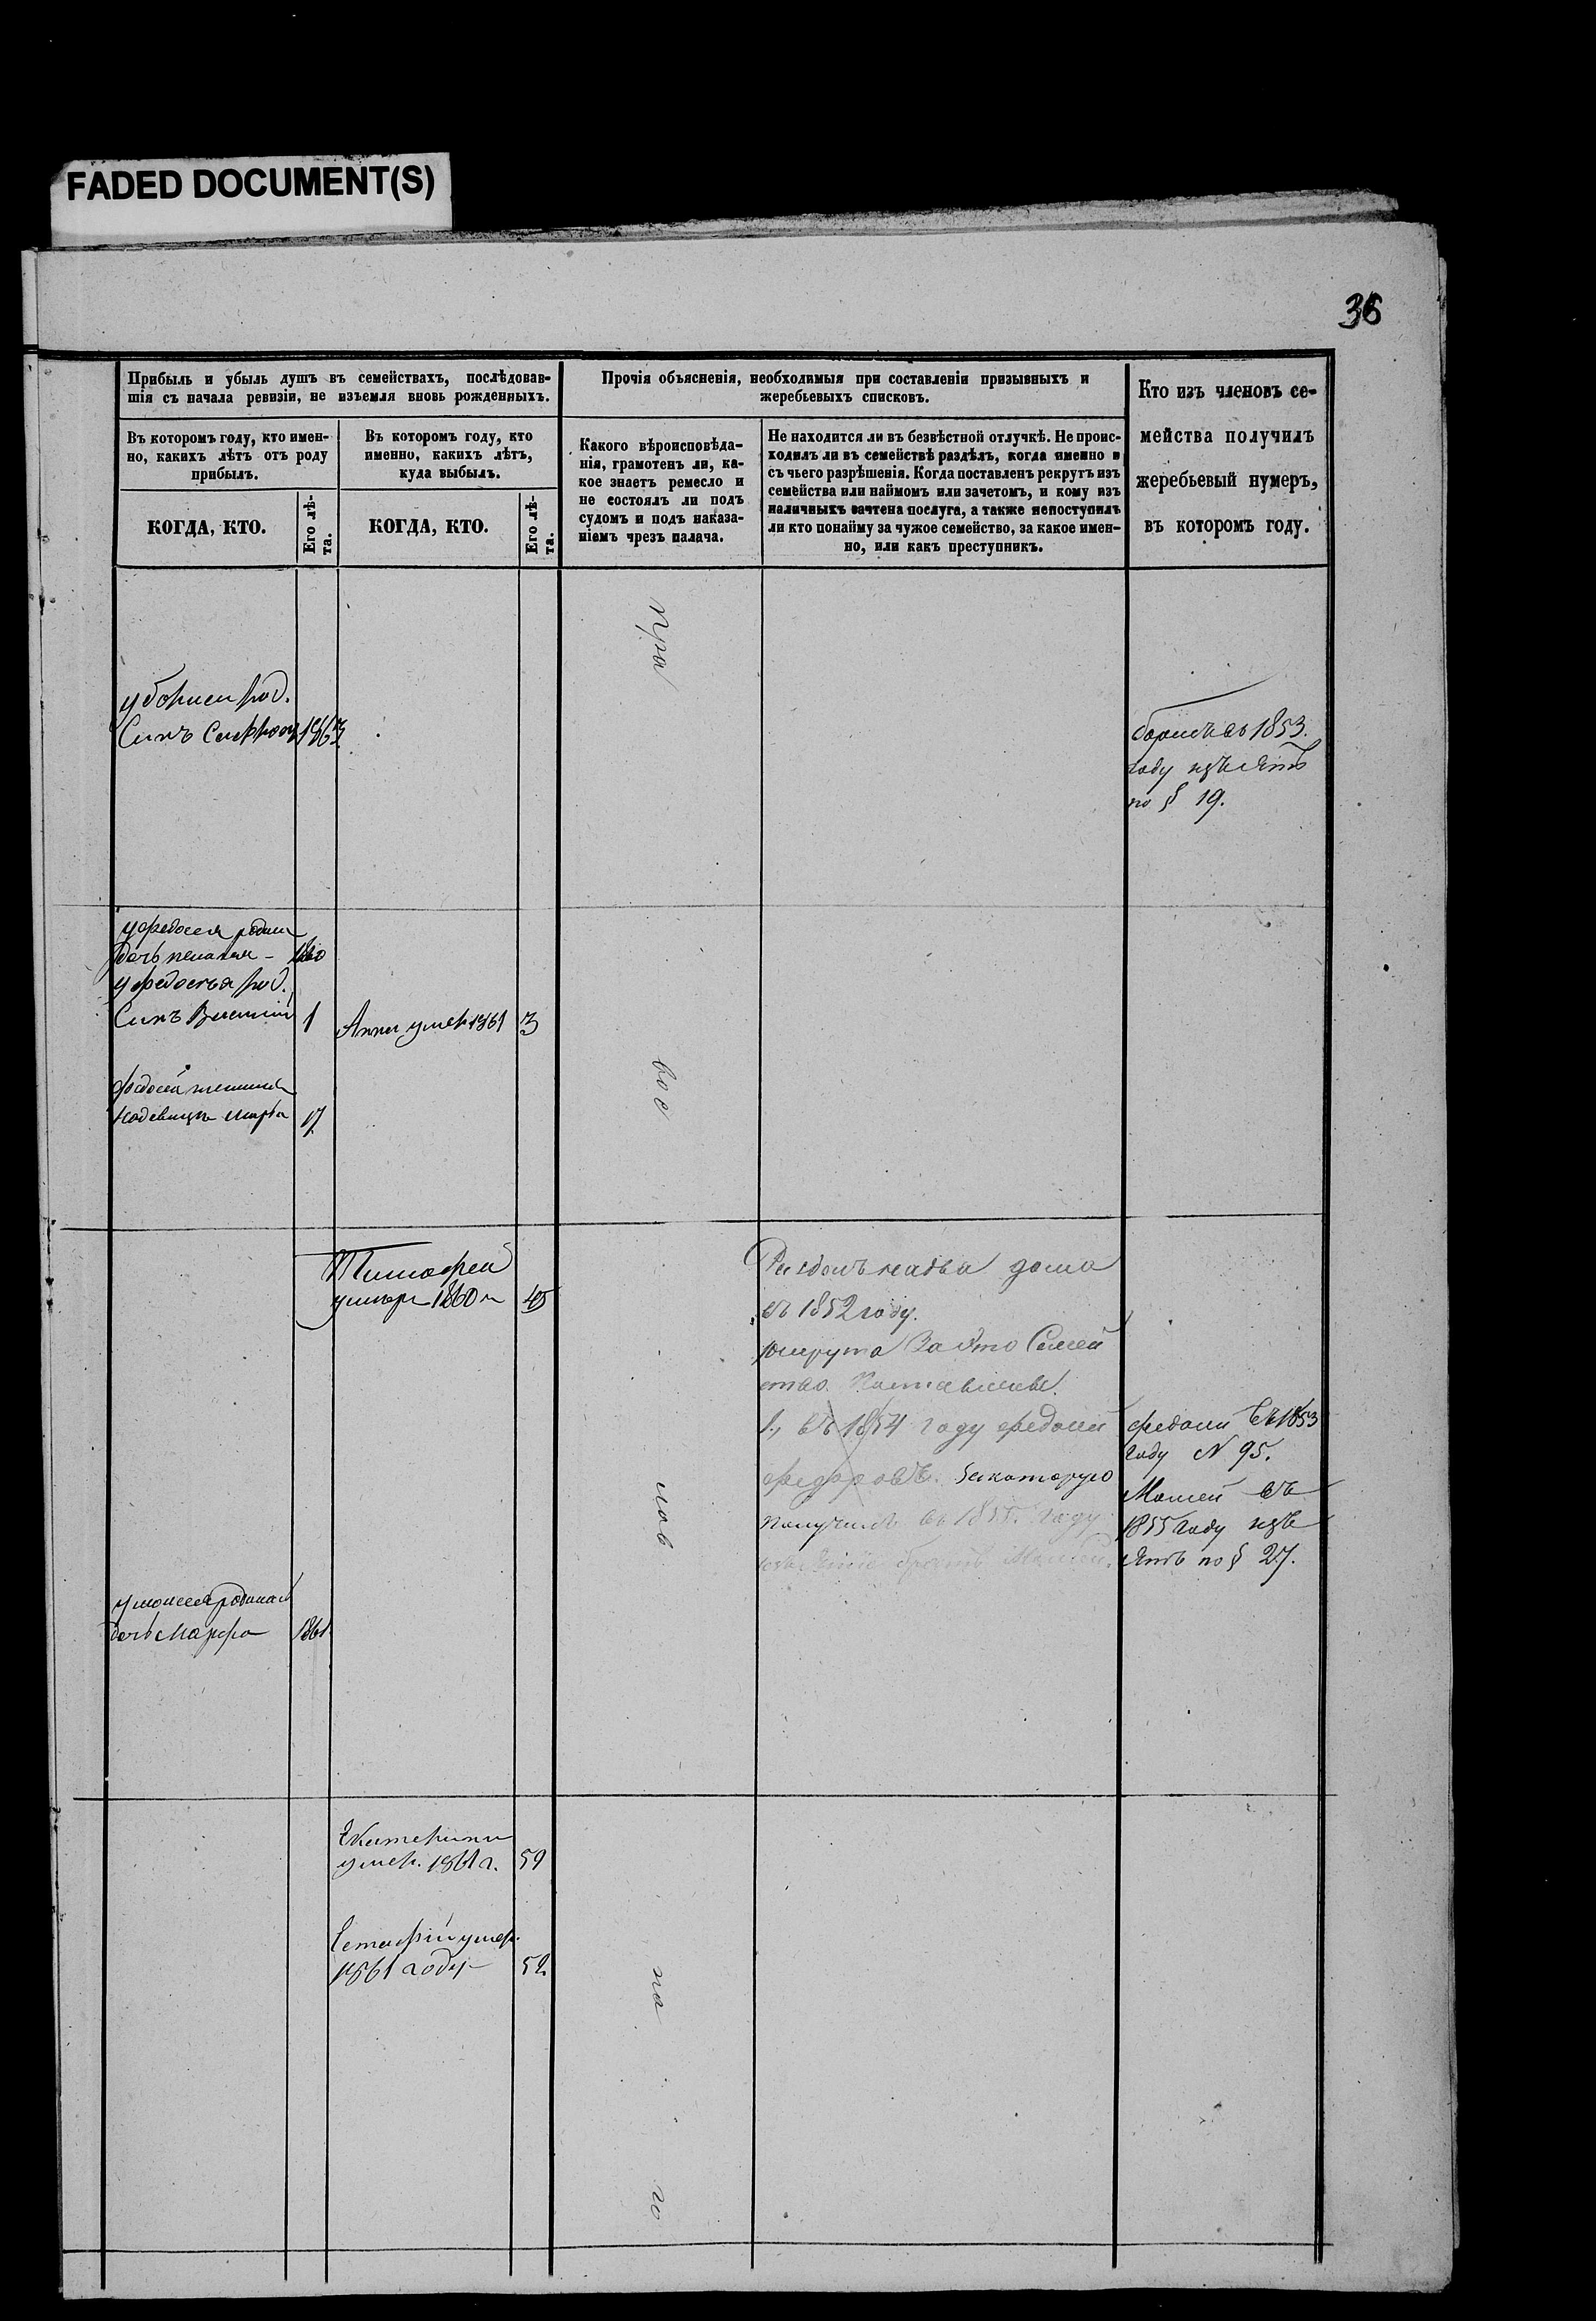 FADED DOCUMENT(S)
36
Прибыль и убыль душъ въ семействахъ, послѣдовав-
шія съ начала ревизіи, не изъемля вновь рожденныхъ.
Прочія объясненія, необходимыя при составленіи призывныхъ и
жеребьевыхъ списковъ.
Кто изъ членовъ се-
мейства получилъ
жеребьевый нумеръ,
въ которомъ году.
Въ которомъ году, кто имен-
но, какихъ лѣтъ отъ роду
прибылъ.
Въ которомъ году, кто
именно, какихъ лѣтъ,
куда выбылъ.
Какого вѣроисповѣда-
нія, грамотенъ ли, ка-
кое знаетъ ремесло и
не состоялъ ли подъ
судомъ и подъ наказа-
ніемъ чрезъ палача.
Не находится ли въ безвѣстной отлучкѣ. Не проис-
ходилъ ли въ семействѣ раздѣлъ, когда именно и
съ чьего разрѣшенія. Когда поставленъ рекрутъ изъ
семейства или наймомъ или зачетомъ, и кому изъ
наличныхъ зачтена послуга, а также непоступилъ
ли кто понайму за чужое семейство, за какое имен-
но, или какъ преступникъ.
КОГДА, КТО.
Его лѣ-
та.
КОГДА, КТО.
Его лѣ-
та.
Пра
у бориса род.
Сынъ 1863
борисъ въ 1853.
году изъятъ
по § 19.
у федосея родил
дочь 1860
у федосея род.
Сынъ 1
Анна умер 1861 3
вос
федосей
17
Тимофей
умеръ 1860 г 45
дома
въ 1852 году.
рекрута За это Семей
ство
1., въ 1854 году федосей
федоровъ. за которую
получилъ въ 1855. году
братъ Мосей.
федосей въ 1853
году N 95.
Мосей въ
1855 году изъ
ятъ по § 27.
лов
у мосея родилась
дочь Марфа 1861
Екатерина
умер. 1861 г. 59
умер.
1861 году 52
на
го